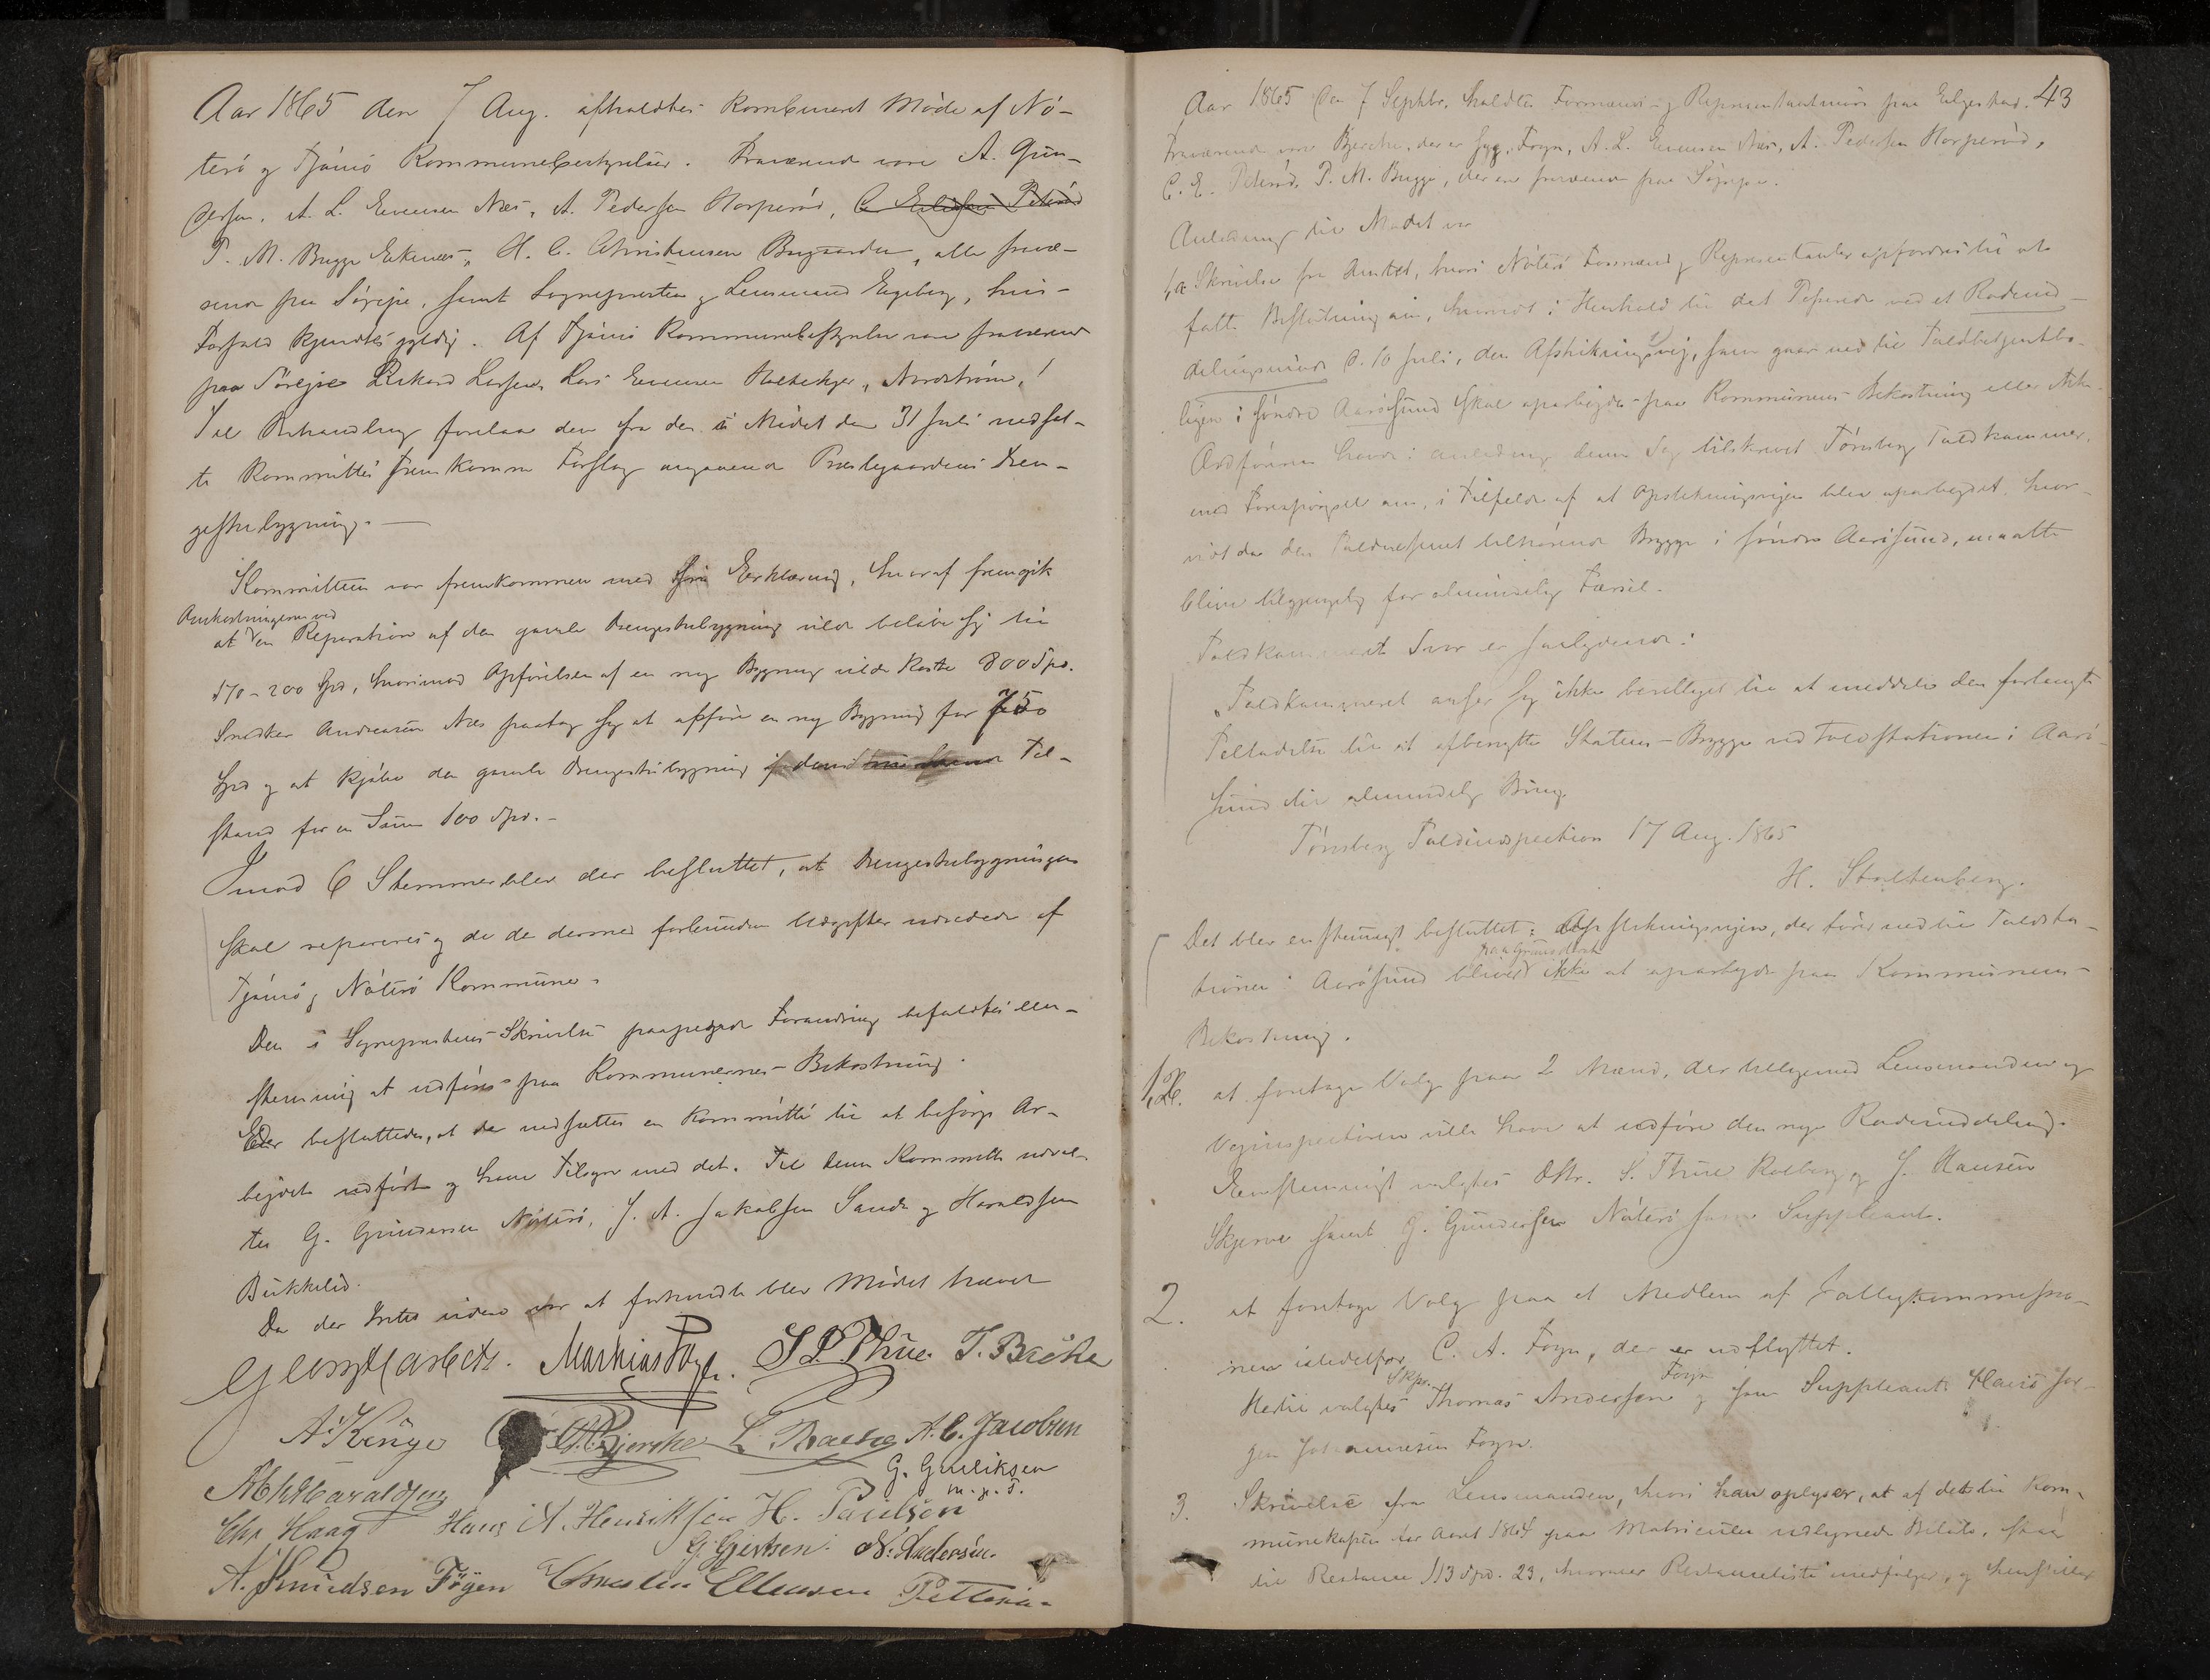 Aar 1865 den 7 Aug. afholdtes kombineret Møde af Nø-
terø og Tjømø Kommunebestyrelser. Fraværende vare A. Gun-
dersen, A. L. Evensen Næs, A. Pedersen Horperød,
P. M. Bugge Ekenæs, H. C. Christensen Bugaarden, alle fravæ-
rende paa Søreise, samt Sognepresten og Lensmand Engeberg, hvis
Forfald kjendtes gyldig. Af Tjømø Kommunebestyrelse vare fraværende
paa Søreise Rikard Larsen, Lars Evensen Holtekjer, Nordstrøm,
Til Behandling forelaa den fra den i Mødet den 31 Juli nedsat-
te Kommitté fremkomne Forslag angaaende Prestegaardens Dren-
gestubygning. —
Kommitteen var fremkommen med sin Erklæring, hvoraf fremgik
Omkostningerne ved
at en Reparation af den gamle Drengestubygning vilde beløbe sig til
170-200 Spd, hvorimod Opførelsen af en ny Bygning vilde koste 800 Spd.
Snedker Andreasen Næs paatog sig at opføre en ny Bygning for 750
Spd og at kjøbe den gamle Drengestubygning i dens Til-
stand for en Sum 100 Spd. -
mod 6 Stemmer blev der besluttet, at Drengestubygningen
skal repareres og de dermed forbundne Udgifter udredede af
Tjømø og Nøterø Kommune.
Den i Sogneprestens Skrivelse paapegede Forandring befaldtes een-
stemmig at udføres paa Kommunernes Bekostning.
Der besluttedes, at der nedsættes en Kommitté til at besørge Ar-
beidet udført og have Tilsyn med det. Til denne Kommitté udval-
tes G. Gundersen Nøterø, J. A. Jakobsen Sande og Haraldsen
Bukkelid.
Da der Intet videre var at forhandle blev Mødet hævet
Mathias Føyn. S. P. Thue. T. Bache
A. Kruge Bjercke L. Bache A. C. Jacobsen
G. Guliksen
m. p. P.
Haraldsen
Chr Haag Hans A. Henriksen H. Paulsen
G. Gjertsen. N. Andersen.
A. Knudsen Föyen Christen Ellensen
43
Aar 1865 den 7 Septbr. holdtes Formænd- og Representantmøde paa Elgestad.
Fraværende vare Bjercke, der er syg, Foyn, A. L. Evensen Næs, A. Pedersen Horperød,
C. E. Peterød, P. M. Bugge, der ere fraværende paa Søreise.
Anledning til Mødet var
1,a Skrivelse fra Amtet, hvori Nøterø Formænd og Representanter opfordres til at
fatte Beslutning om, hvorvidt i Henhold til det Passerede ved et Rodeind-
delingsmøde d. 10 Juli, den Afstikningsvej, som gaar ned til Toldbetjentbo-
ligen i søndre Aarøsund skal oparbejdes paa Kommunens Bekostning eller ikke.
Ordføreren havde i Anledning denne Sag tilskrevet Tønsberg Toldkammer,
med Forespørgsel om, i Tilfælde af at Afstikningsvejen blev oparbejdet, hvor-
vidt da den Toldvæsenet tilhørende Brygge i søndre Aarøsund, maatte
blive tilgjængelig for almindelig Færsel.
Toldkammeret Svar er saalydende:
„Toldkammeret anser sig ikke bevilget til at meddele den forlangte
Tilladelse til at afbenytte Statens Brygge ved Toldstationen i Aarø-
sund til almindelig Brug.
Tønsberg Toldinspection 17 Aug. 1865
H. Stoltenberg.
Det blev enstemmigt besluttet: Afstikningsvejen, der fører ned til Toldsta-
tionen i Aarøsund bliver ikke at oparbejde paa Kommunens
Bekostning.
1,b. at foretage Valg paa 2 Mænd, der tilligemed Lensmanden og
Veginspectøren ville have at udføre den nye Rodeinddeling.
Eenstemmigt valgtes DHr. S. Thue Kolberg og J. Hansen
Skjerve samt G. Gundersen Nøterø som Suppleant.
2. at foretage Valg paa et Medlem af Fattigkommissio-
nen istedetfor C. A. Foyn, der er udflyttet.
Skpr. Foyn
Hertil valgtes Thomas Anderssen og som Suppleant Hans Jør-
gen Johannesen Foyn.
3. Skrivelse fra Lensmanden, hvori han oplyser, at af det til Kom-
munekassen for Aaret 1864 paa Matriculen udlignede Beløb, staar
til Restance 113 Spd. 23, hvorover Restanceliste medfølger, og henstiller